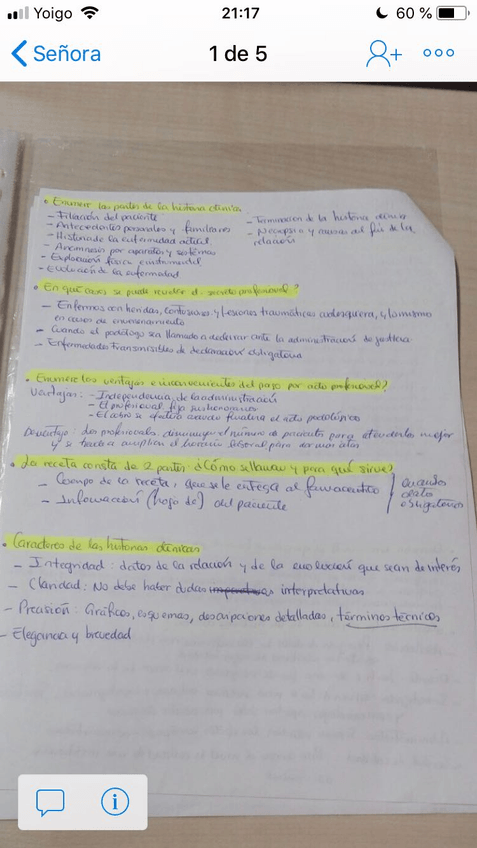 Yoigo 21:17 60 %
Señora 1 de 5
• Enumere las partes de la historia clínica
- Filiación del paciente
- Antecedentes personales y familiares
- Historia de la enfermedad actual
- Anamnesis por aparatos y sistemas
- Exploración física e instrumental
- Evolución de la enfermedad
- Terminación de la historia clínica
- Necropsia y museos del fin de la
relación
• En qué casos se puede revelar el secreto profesional?
- Enfermos con heridas, contusiones y lesiones traumáticas cualesquiera, y lo mismo
en casos de envenenamiento
- Cuando el podólogo sea llamado a declarar ante la administración de justicia
- Enfermedades Transmisibles de declaración obligatoria
• Enumere las ventajas e inconvenientes del pago por acto profesional?
Ventajas: - Independencia de la administración
- El profesional fija sus honorarios
- El cobro se efectua finalizar el acto podológico
Desventaja: los profesionales disminuye el número de pacientes para atenderlos mejor
y se tiende a ampliar el horario laboral para ver más
• La receta consta de 2 partes: ¿Cómo se llaman y para qué sirve?
- Cuerpo de la receta, que se le entrega al farmaceutico
- Información (hoja de) al paciente
Cuando
datos
obligatorios
• Caracteres de las historias clínicas
- Integridad: datos de la relación y de la evolución que sean de interés
- Claridad: No debe haber dudas interpretativas
- Precisión: Gráficos, esquemas, descripciones detalladas, términos técnicos
- Elegancia y brevedad